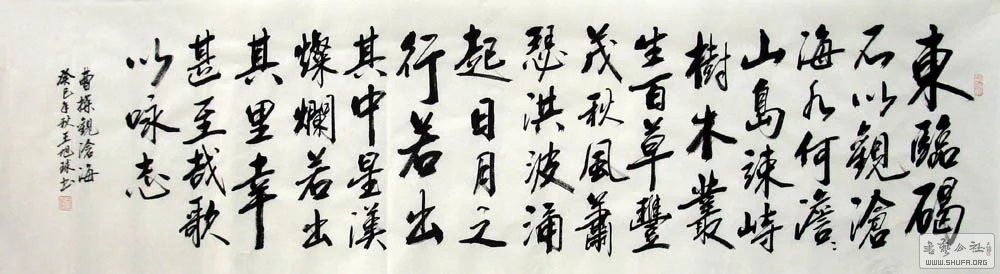 東臨碣
石以觀滄
海水何澹〻
山島竦峙
樹木叢
生百草豐
茂秋風蕭
瑟洪波涌
起日月之
行若出
其中星漢
燦爛若出
其里幸
甚至哉歌
以咏志
曹操觀滄海
癸巳年秋王旭书
書藝公社
WWW.SHUFA.ORG